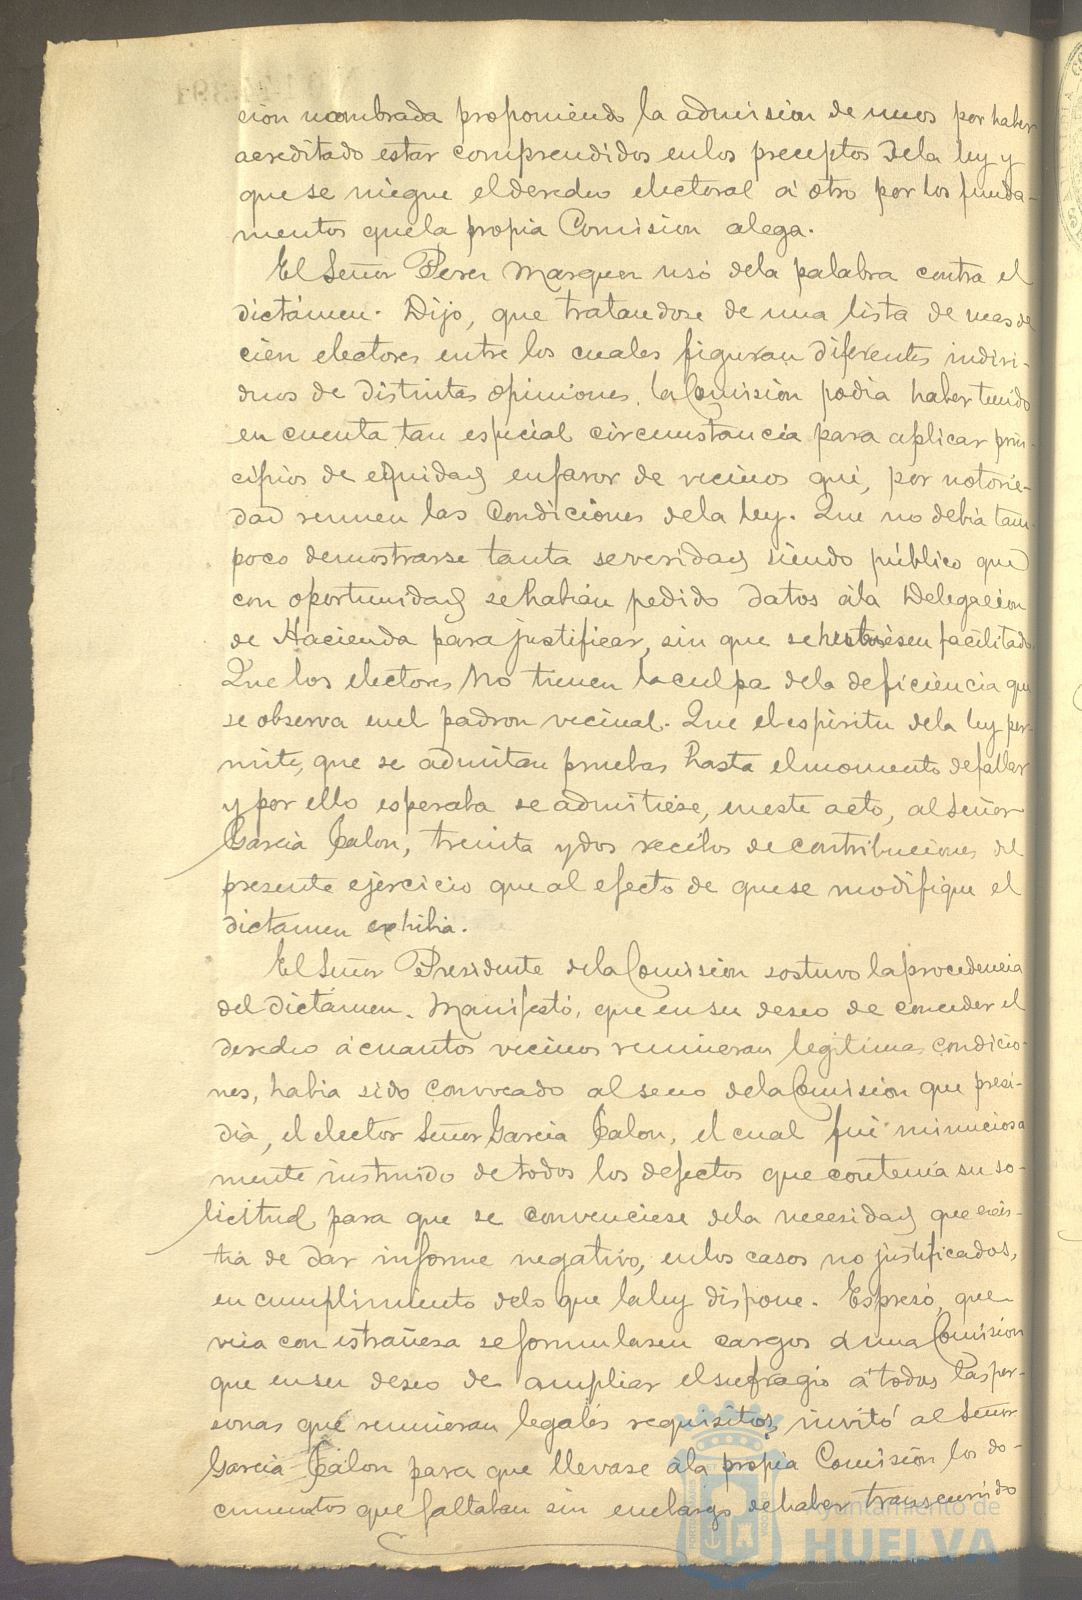 cion nombrada proponiendo la admision de unos por haber
acreditado estar comprendidos en los preceptos de la ley y
que se niegue el derecho electoral á otro por los funda-
mentos que la propia Comision alega.
El Señor Perez Marquez usó de la palabra contra el
dictámen. Dijo, que tratandose de una lista de mas de
cien electores entre los cuales figuran diferentes indivi-
duos de distintas opiniones, la Comisión podia haber tenido
en cuenta tan especial circumstancia para aplicar prin-
cipios de equidad en favor de vecinos que, por notorie-
dad reunen las condiciones de la ley. Que no debia tam-
poco demostrarse tanta severidad siendo público que
con oportunidad se habian pedido datos á la Delegacion
de Hacienda para justificar, sin que se hubiesen facilitado.
Que los electores no tienen la culpa de la deficiencia que
se observa en el padron vecinal. Que el espiritu de la ley per-
mite, que se admitan pruebas hasta el momento de fallar
y por ello esperaba se admitiese, en este acto, al Señor
Garcia Talon, treinta y dos recibos de contribuciones del
presente ejercicio que al efecto de que se modifique el
dictamen exhibia.
El Señor Presidente de la Comisión sostuvo la procedencia
del dictámen. Manifestó, que en su deseo de conceder el
derecho á cuantos vecinos reunieran legitimas condicio-
nes, habia sido convocado al seno de la Comisión que presi-
dia, el elector Señor Garcia Talon, el cual fué minuciosa
mente instruido de todos los defectos que contenia su so-
licitud para que se convenciese de la necesidad que exis-
tia de dar informe negativo, en los casos no justificados,
en cumplimiento de lo que la ley dispone. Espresó, que
veia con estrañesa se formulasen cargos á una Comisión
que en su deseo de ampliar el sufragio á todas las per-
sonas que reunieran legales requisitos, invitó al Señor
Garcia Talon para que llevase á la propia Comisión los do-
cumentos que faltaban sin embargo de haber transcurrido
Ayuntamiento de
HUELVA